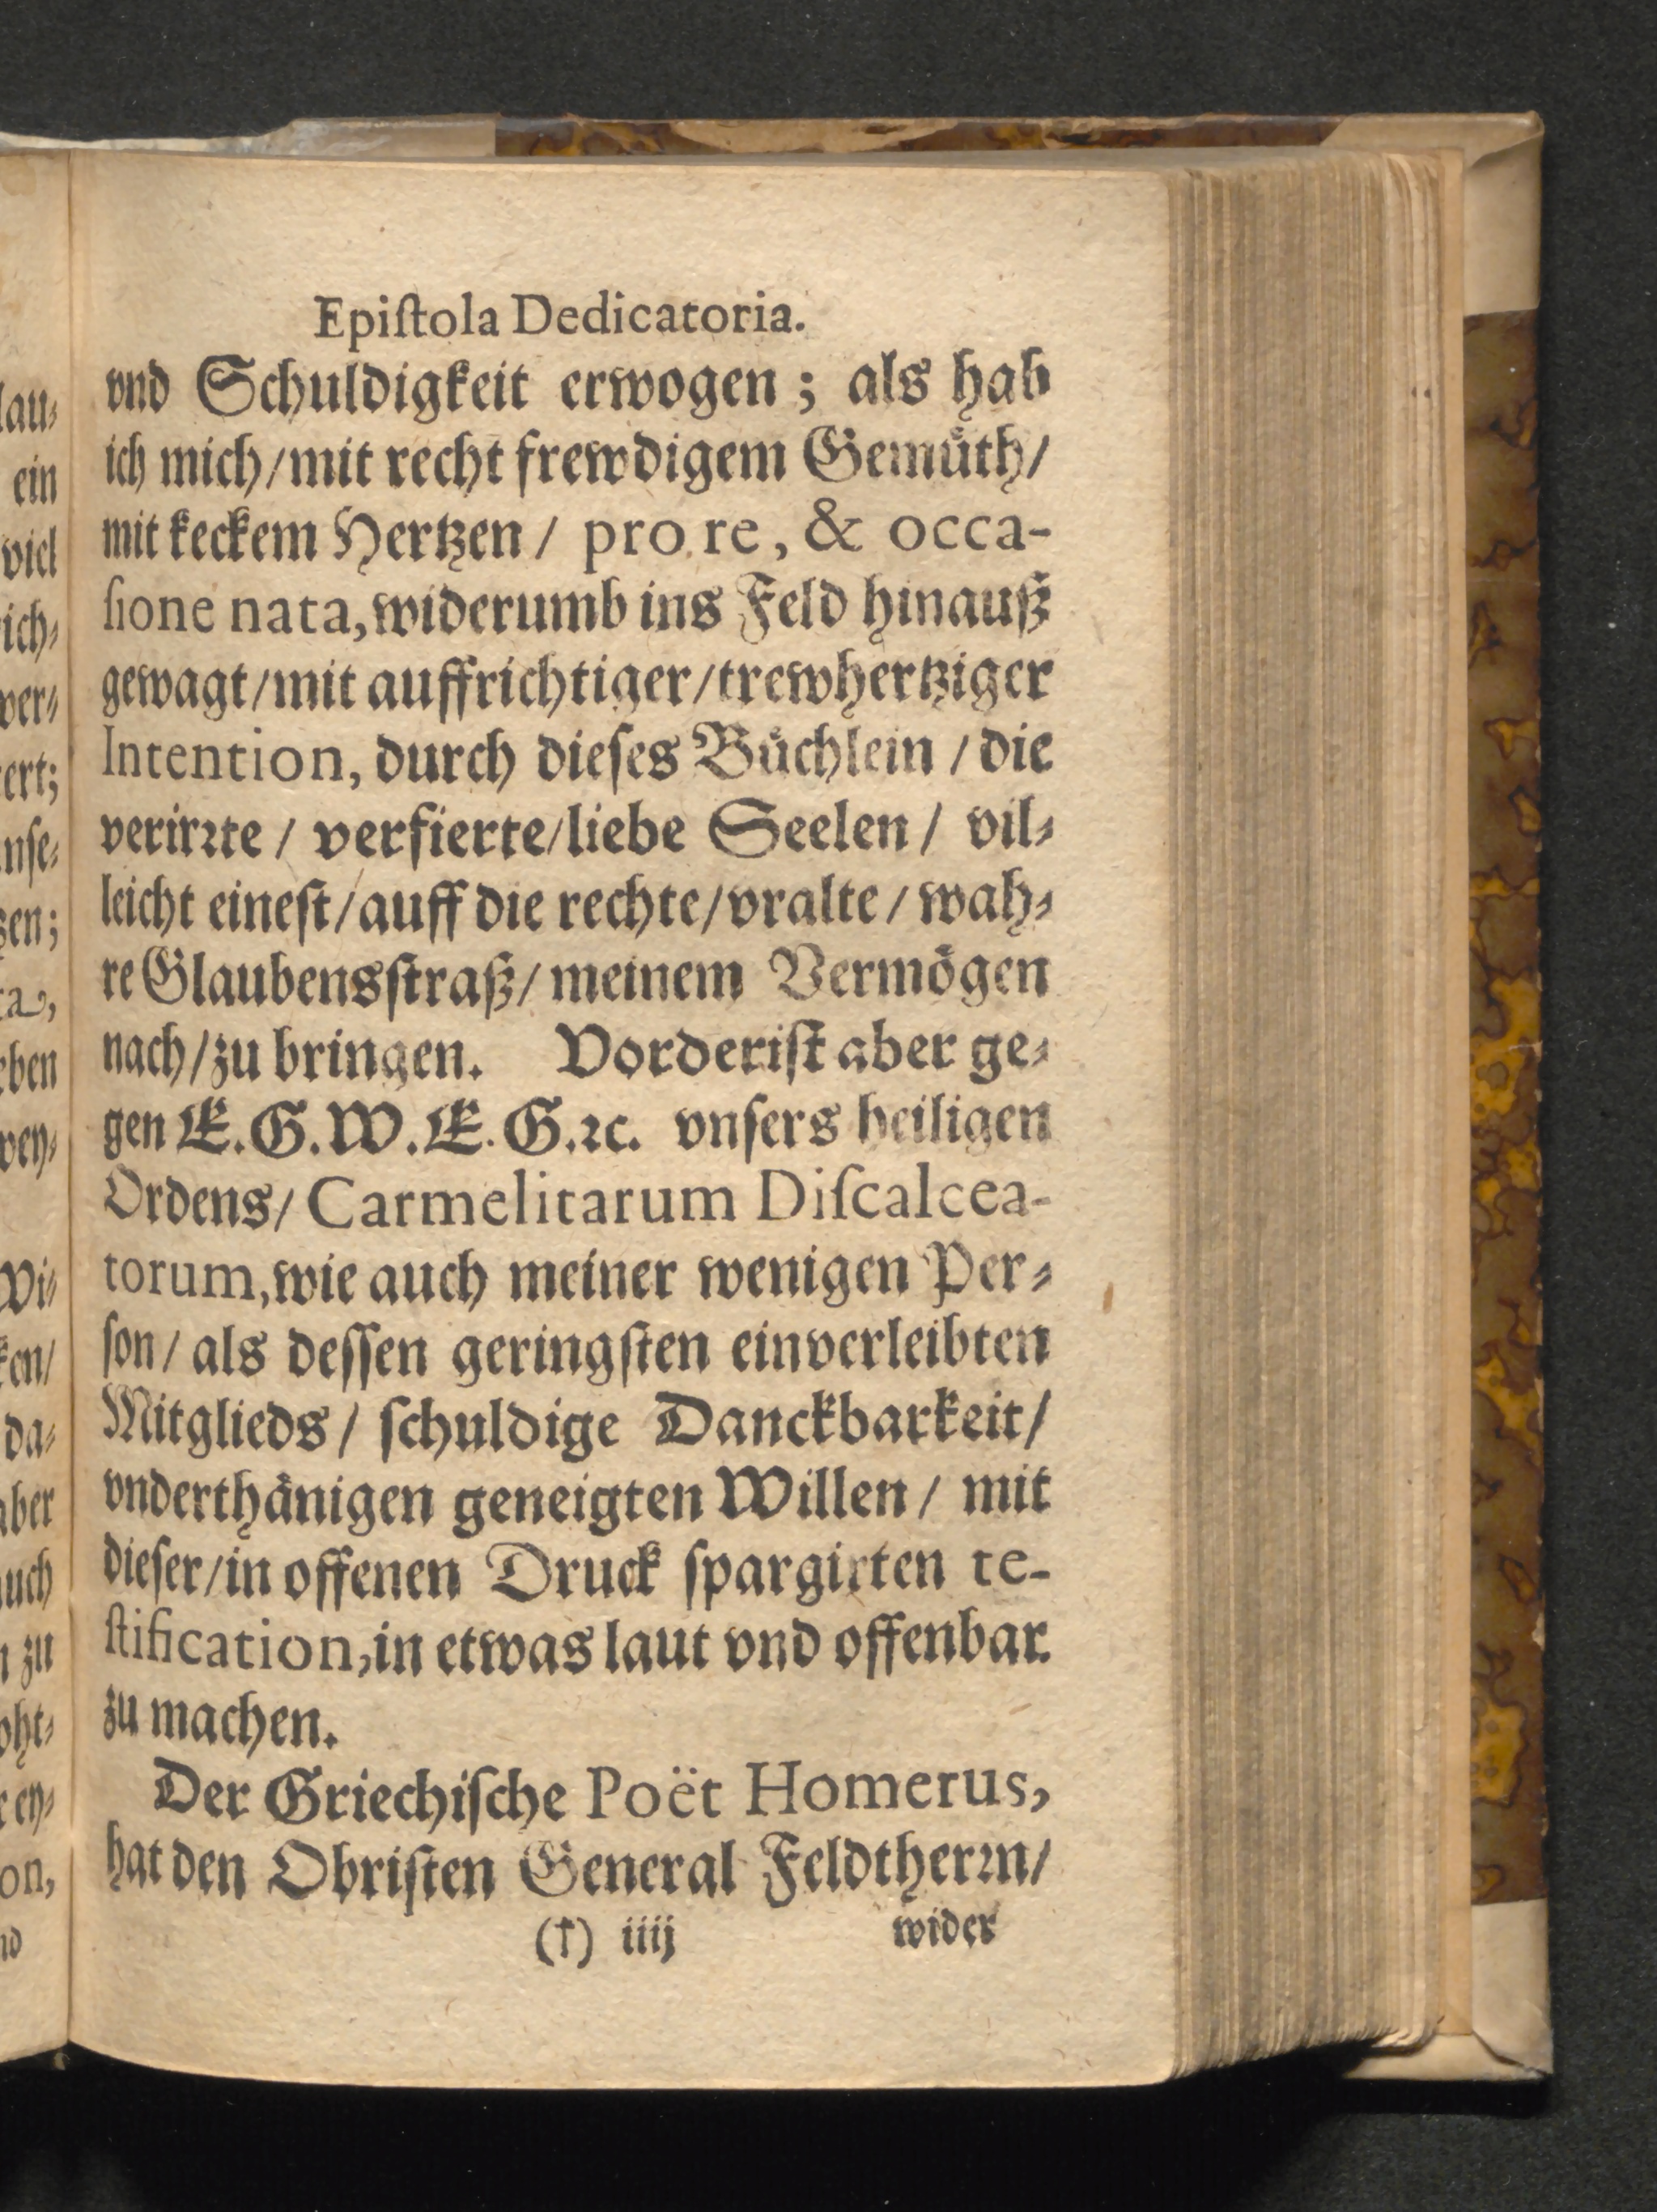 Epiſtola Dedicatoria.
vnd Schuldigkeit erwogen; als hab
ich mich/mit recht frewdigem Gemuͤth/
mit keckem Hertzen / pro re, & occa-
ſione nata, widerumb ins Feld hinauß
gewagt/mit auffrichtiger/trewhertziger
Intention, durch dieſes Buͤchlein / die
verirꝛte / verfierte/liebe Seelen / vil⸗
leicht eineſt/auff die rechte/vralte/wah⸗
re Glaubensſtraß/ meinem Vermoͤgen
nach/zu bringen. Vorderiſt aber ge⸗
gen E.G.W.E.G.ꝛc. vnſers heiligen
Ordens/ Carmelitarum Diſcalcea-
torum, wie auch meiner wenigen Per⸗
ſon/ als deſſen geringſten einverleibten
Mitglieds / ſchuldige Danckbarkeit/
vnderthaͤnigen geneigten Willen / mit
dieſer/in offenen Druck ſpargirten te-
ſtification, in etwas laut vnd offenbar
zu machen.
Der Griechiſche Poët Homerus,
hat den Obriſten General Feldtherꝛn/
(†) iiij wider
lau⸗
ein
viel
ich⸗
ver⸗
ert;
nſe⸗
zen;
eben
wey⸗
Wi⸗
ken/
da⸗
aber
auch
n zu
oht⸗
ey⸗
on,
nd